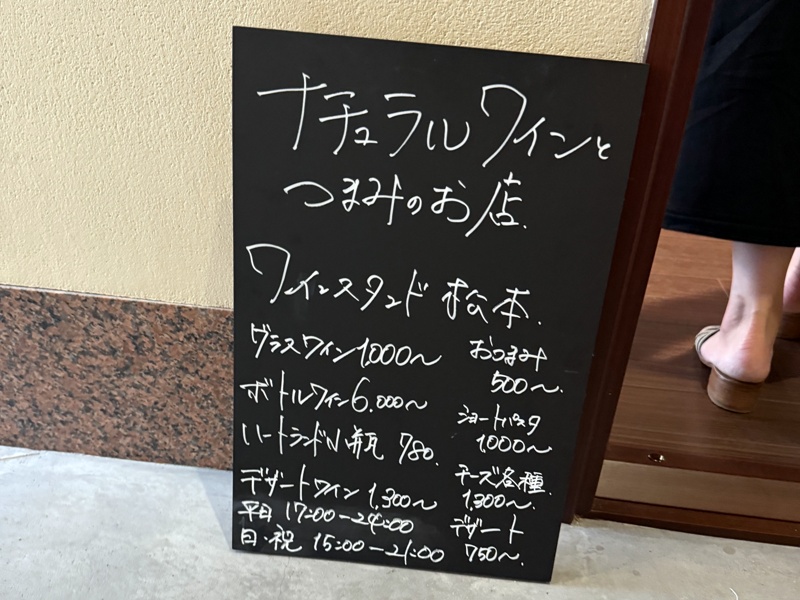 ナチュラルワインと
つまみのお店.
ワインスタンド 松本.
グラスワイン1,000〜
ボトルワイン6,000〜
ハートランド小瓶 780.
デザートワイン 1,300〜
平日 17:00ー24:00
日・祝 15:00ー21:00
おつまみ
500〜.
ショートパスタ
1,000〜
チーズ各種.
1,300〜.
デザート
750〜.